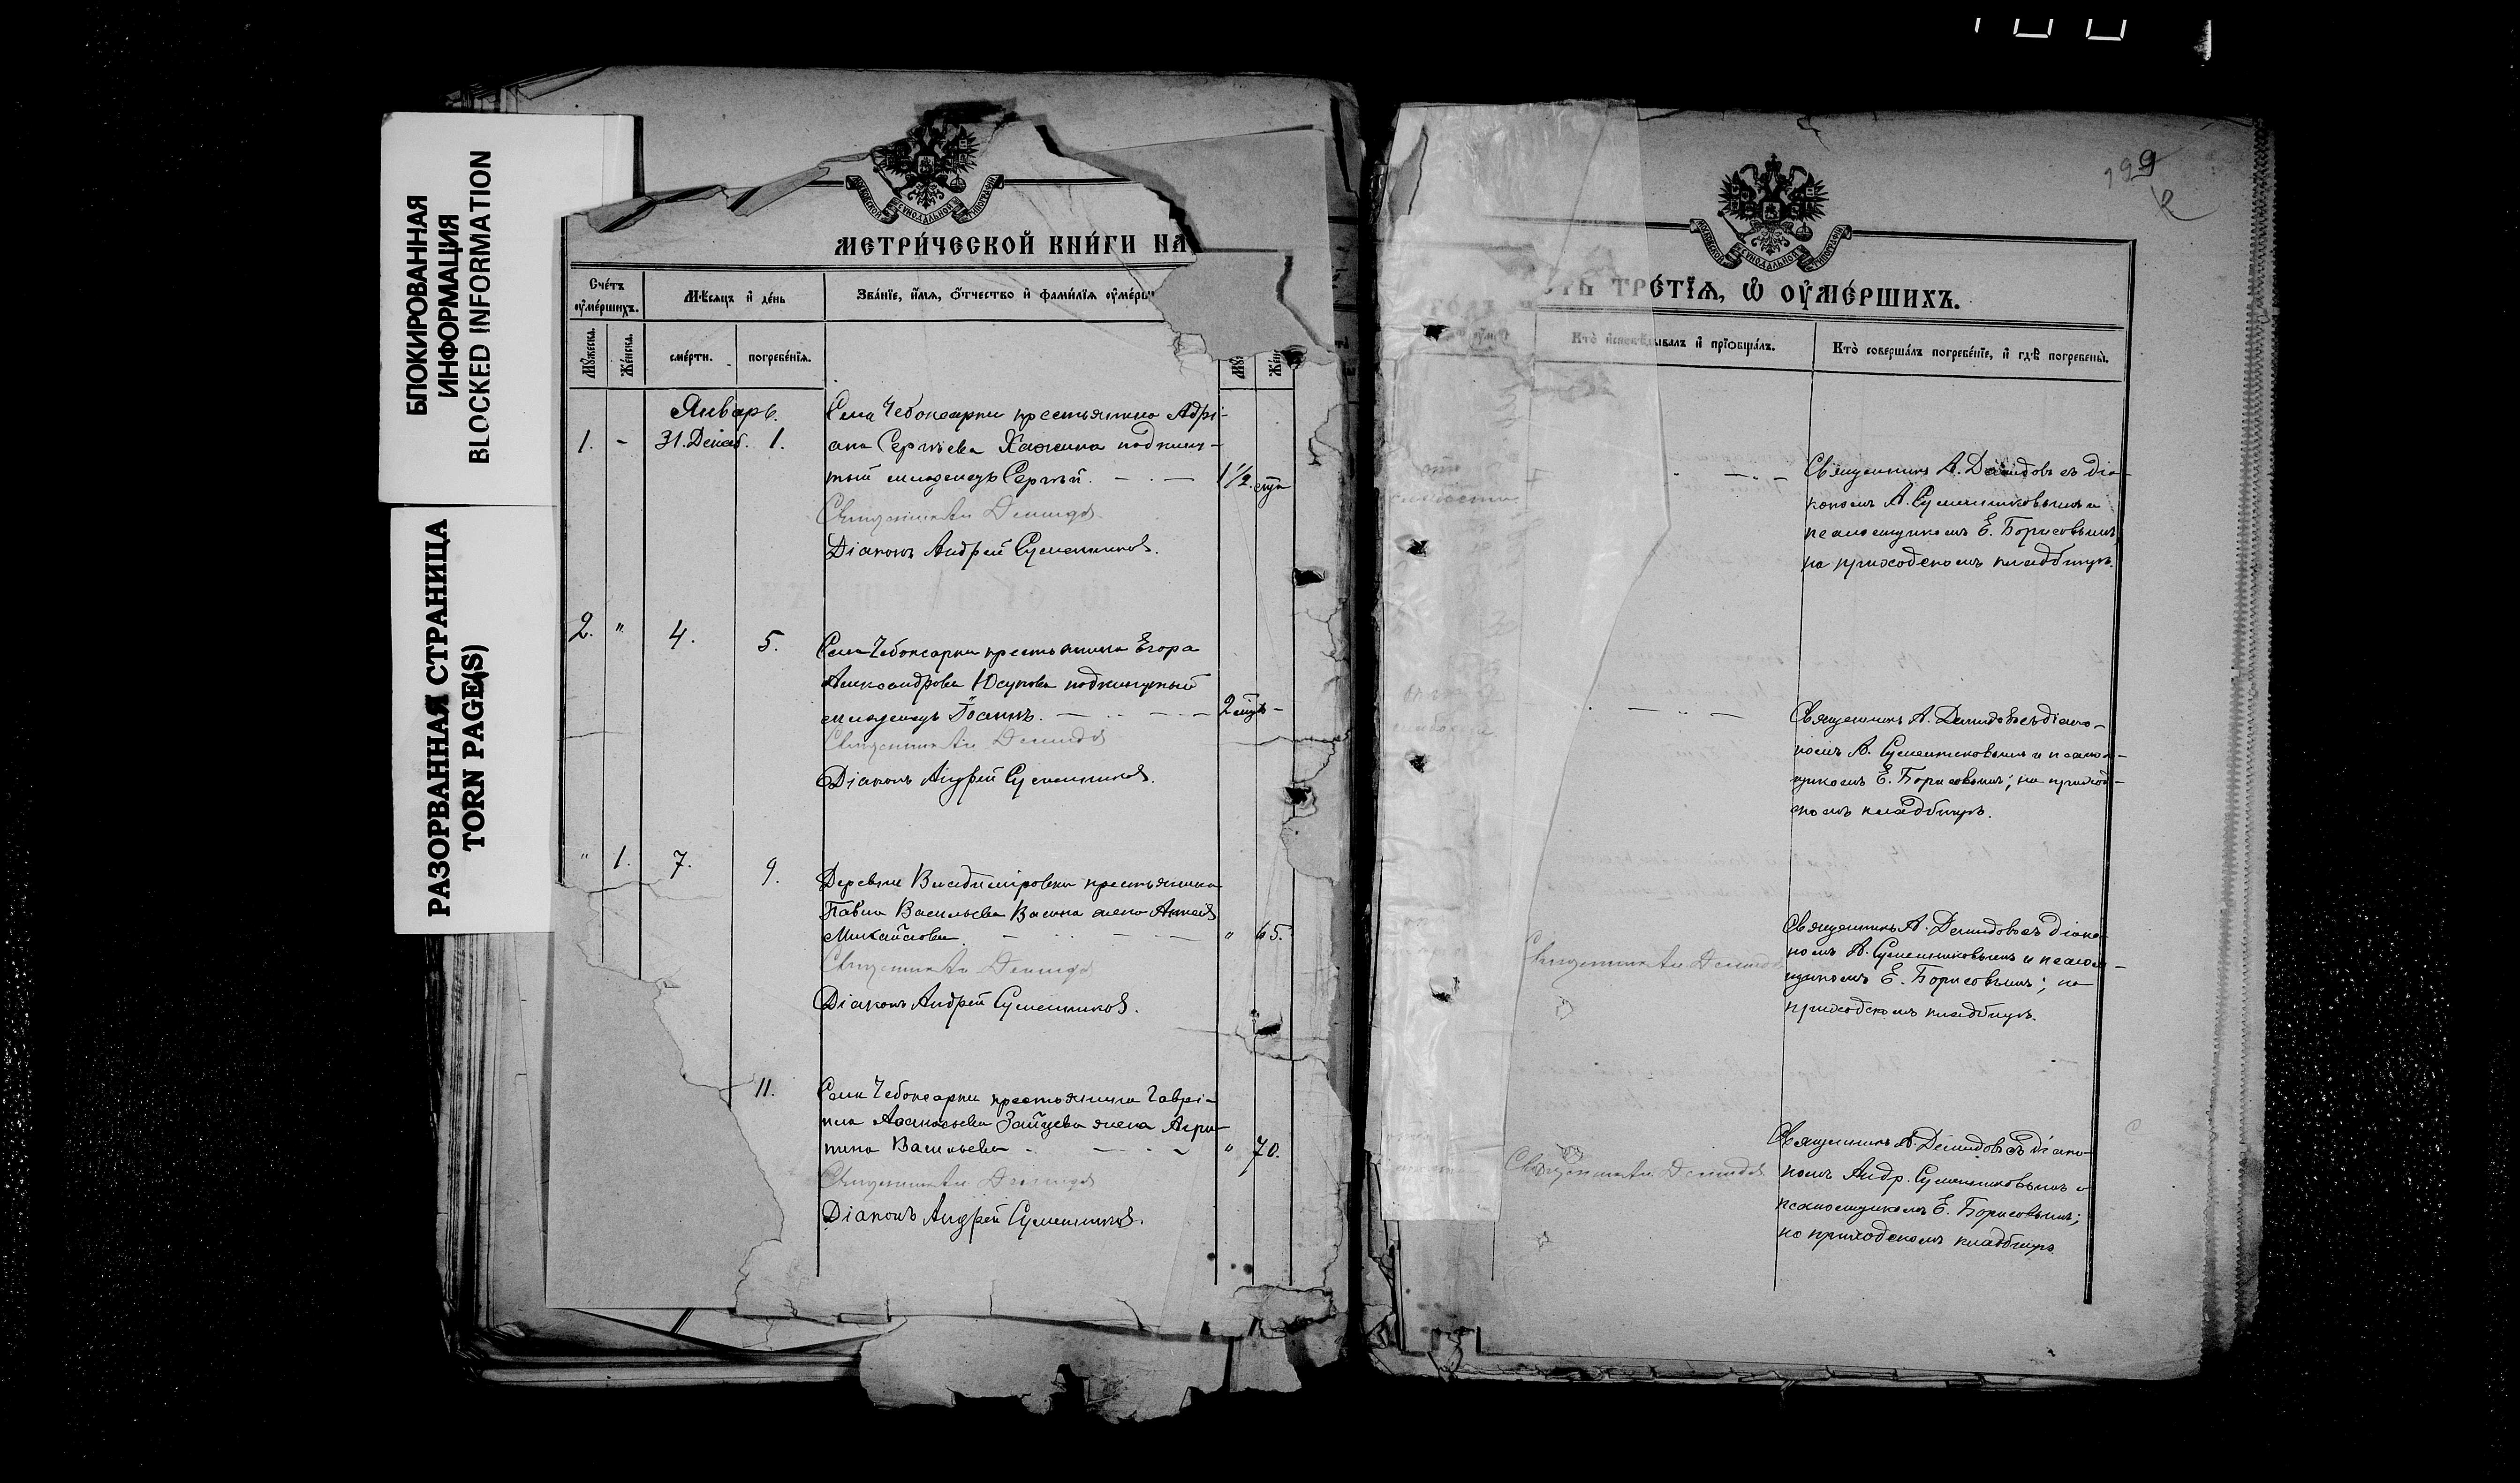 БЛОКИРОВАННАЯ
ИНФОРМАЦИЯ
BLOCKED INFORMATION
РАЗОРВАННАЯ СТРАНИЦА
TORN PAGE(S)
МОСКОВСКОЙ СѴНОДАЛЬНОЙ ТИПОГРАФІИ
МЕТРИ́ЧЕСКОЙ КНИ́ГИ НА
Сче́тъ
оуме́ршихъ.
Мѣ́сяцъ и де́нь
Зва́нїе, и́мя, ѻ́тчество и фами́лїя оуме́рш
Мꙋ́жеска.
Же́нска.
сме́рти.
погребе́нїя.
Январь.
1. - 31. Декаб. 1.
Села Чебоксарки крестьянина Адрі-
ана Сергѣева Хажина подкину-
тый младенецъ Сергѣй. 1 1/2. сут
Священникъ Ал Демидов
Діаконъ Андрей Сументиков.
2. " 4. 5.
Села Чебоксарки крестьянина Егора
Александрова Юсупова подкинутый
младенецъ Іоаннъ. 2 мѣс -
Священникъ Ал Демидов
Діаконъ Андрей Сументиков.
" 1. 7. 9.
Деревни Владиміровки крестьянина
Павла Васильева Васина жена
Михайлова " 65.
Священникъ Ал Демидов
Діаконъ Андрей Сументиков.
11.
Села Чебоксарки крестьянина Гаврі-
ила Аѳанасьева Зайцева жена Агри-
пина Васильева " 70.
Священникъ Ал Демидов
Діаконъ Андрей Сументиков.
199
МОСКОВСКОЙ СѴНОДАЛЬНОЙ ТИПОГРАФІИ
ТРЕ́ТЇЯ, Ѡ ОУМЕ́РШИХЪ.
Кто̀ исповѣ́дывалъ и прїобща́лъ.
Кто̀ соверша́лъ погребе́нїе, и гдѣ̀ погребены̀.
Священникъ А. Демидовъ съ діа-
кономъ А. Сументиковымъ и
псаломщикомъ Е. Борисовымъ,
на приходскомъ кладбищѣ.
Священникъ А. Демидовъ съ діако-
номъ А. Сументиковымъ и псалом-
щикомъ Е. Борисовымъ; на приход-
скомъ кладбищѣ.
Священникъ Ал Демидов
Священникъ А. Демидовъ съ діако-
номъ А. Сументиковымъ и псалом-
щикомъ Е. Борисовымъ; на
приходскомъ кладбищѣ.
Священникъ Ал Демидов
Священникъ А. Демидовъ съ діако-
номъ Андр. Сументиковымъ и
псаломщикомъ Е. Борисовымъ;
на приходскомъ кладбищѣ